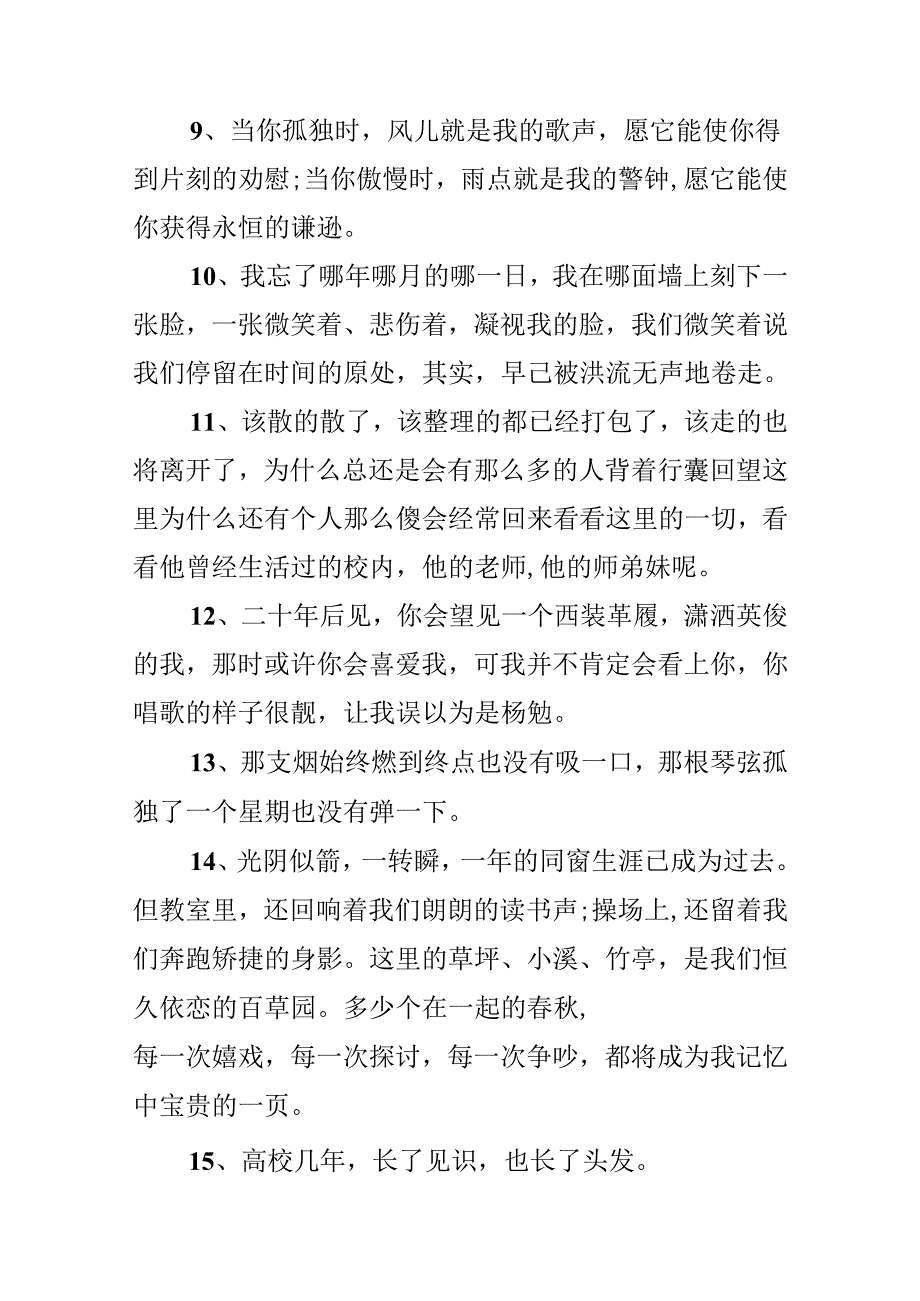 9、当你孤独时，风儿就是我的歌声，愿它能使你得
到片刻的劝慰;当你傲慢时，雨点就是我的警钟,愿它能使
你获得永恒的谦逊。
10、我忘了哪年哪月的哪一日，我在哪面墙上刻下一
张脸，一张微笑着、悲伤着，凝视我的脸，我们微笑着说
我们停留在时间的原处，其实，早己被洪流无声地卷走。
11、该散的散了，该整理的都已经打包了，该走的也
将离开了，为什么总还是会有那么多的人背着行囊回望这
里为什么还有个人那么傻会经常回来看看这里的一切，看
看他曾经生活过的校内，他的老师,他的师弟妹呢。
12、二十年后见，你会望见一个西装革履，潇洒英俊
的我，那时或许你会喜爱我，可我并不肯定会看上你，你
唱歌的样子很靓，让我误以为是杨勉。
13、那支烟始终燃到终点也没有吸一口，那根琴弦孤
独了一个星期也没有弹一下。
14、光阴似箭，一转瞬，一年的同窗生涯己成为过去。
但教室里，还回响着我们朗朗的读书声;操场上,还留着我
们奔跑矫捷的身影。这里的草坪、小溪、竹亭，是我们恒
久依恋的百草园。多少个在一起的春秋,
每一次嬉戏，每一次探讨，每一次争吵，都将成为我记忆
中宝贵的一页。
15、高校几年，长了见识，也长了头发。